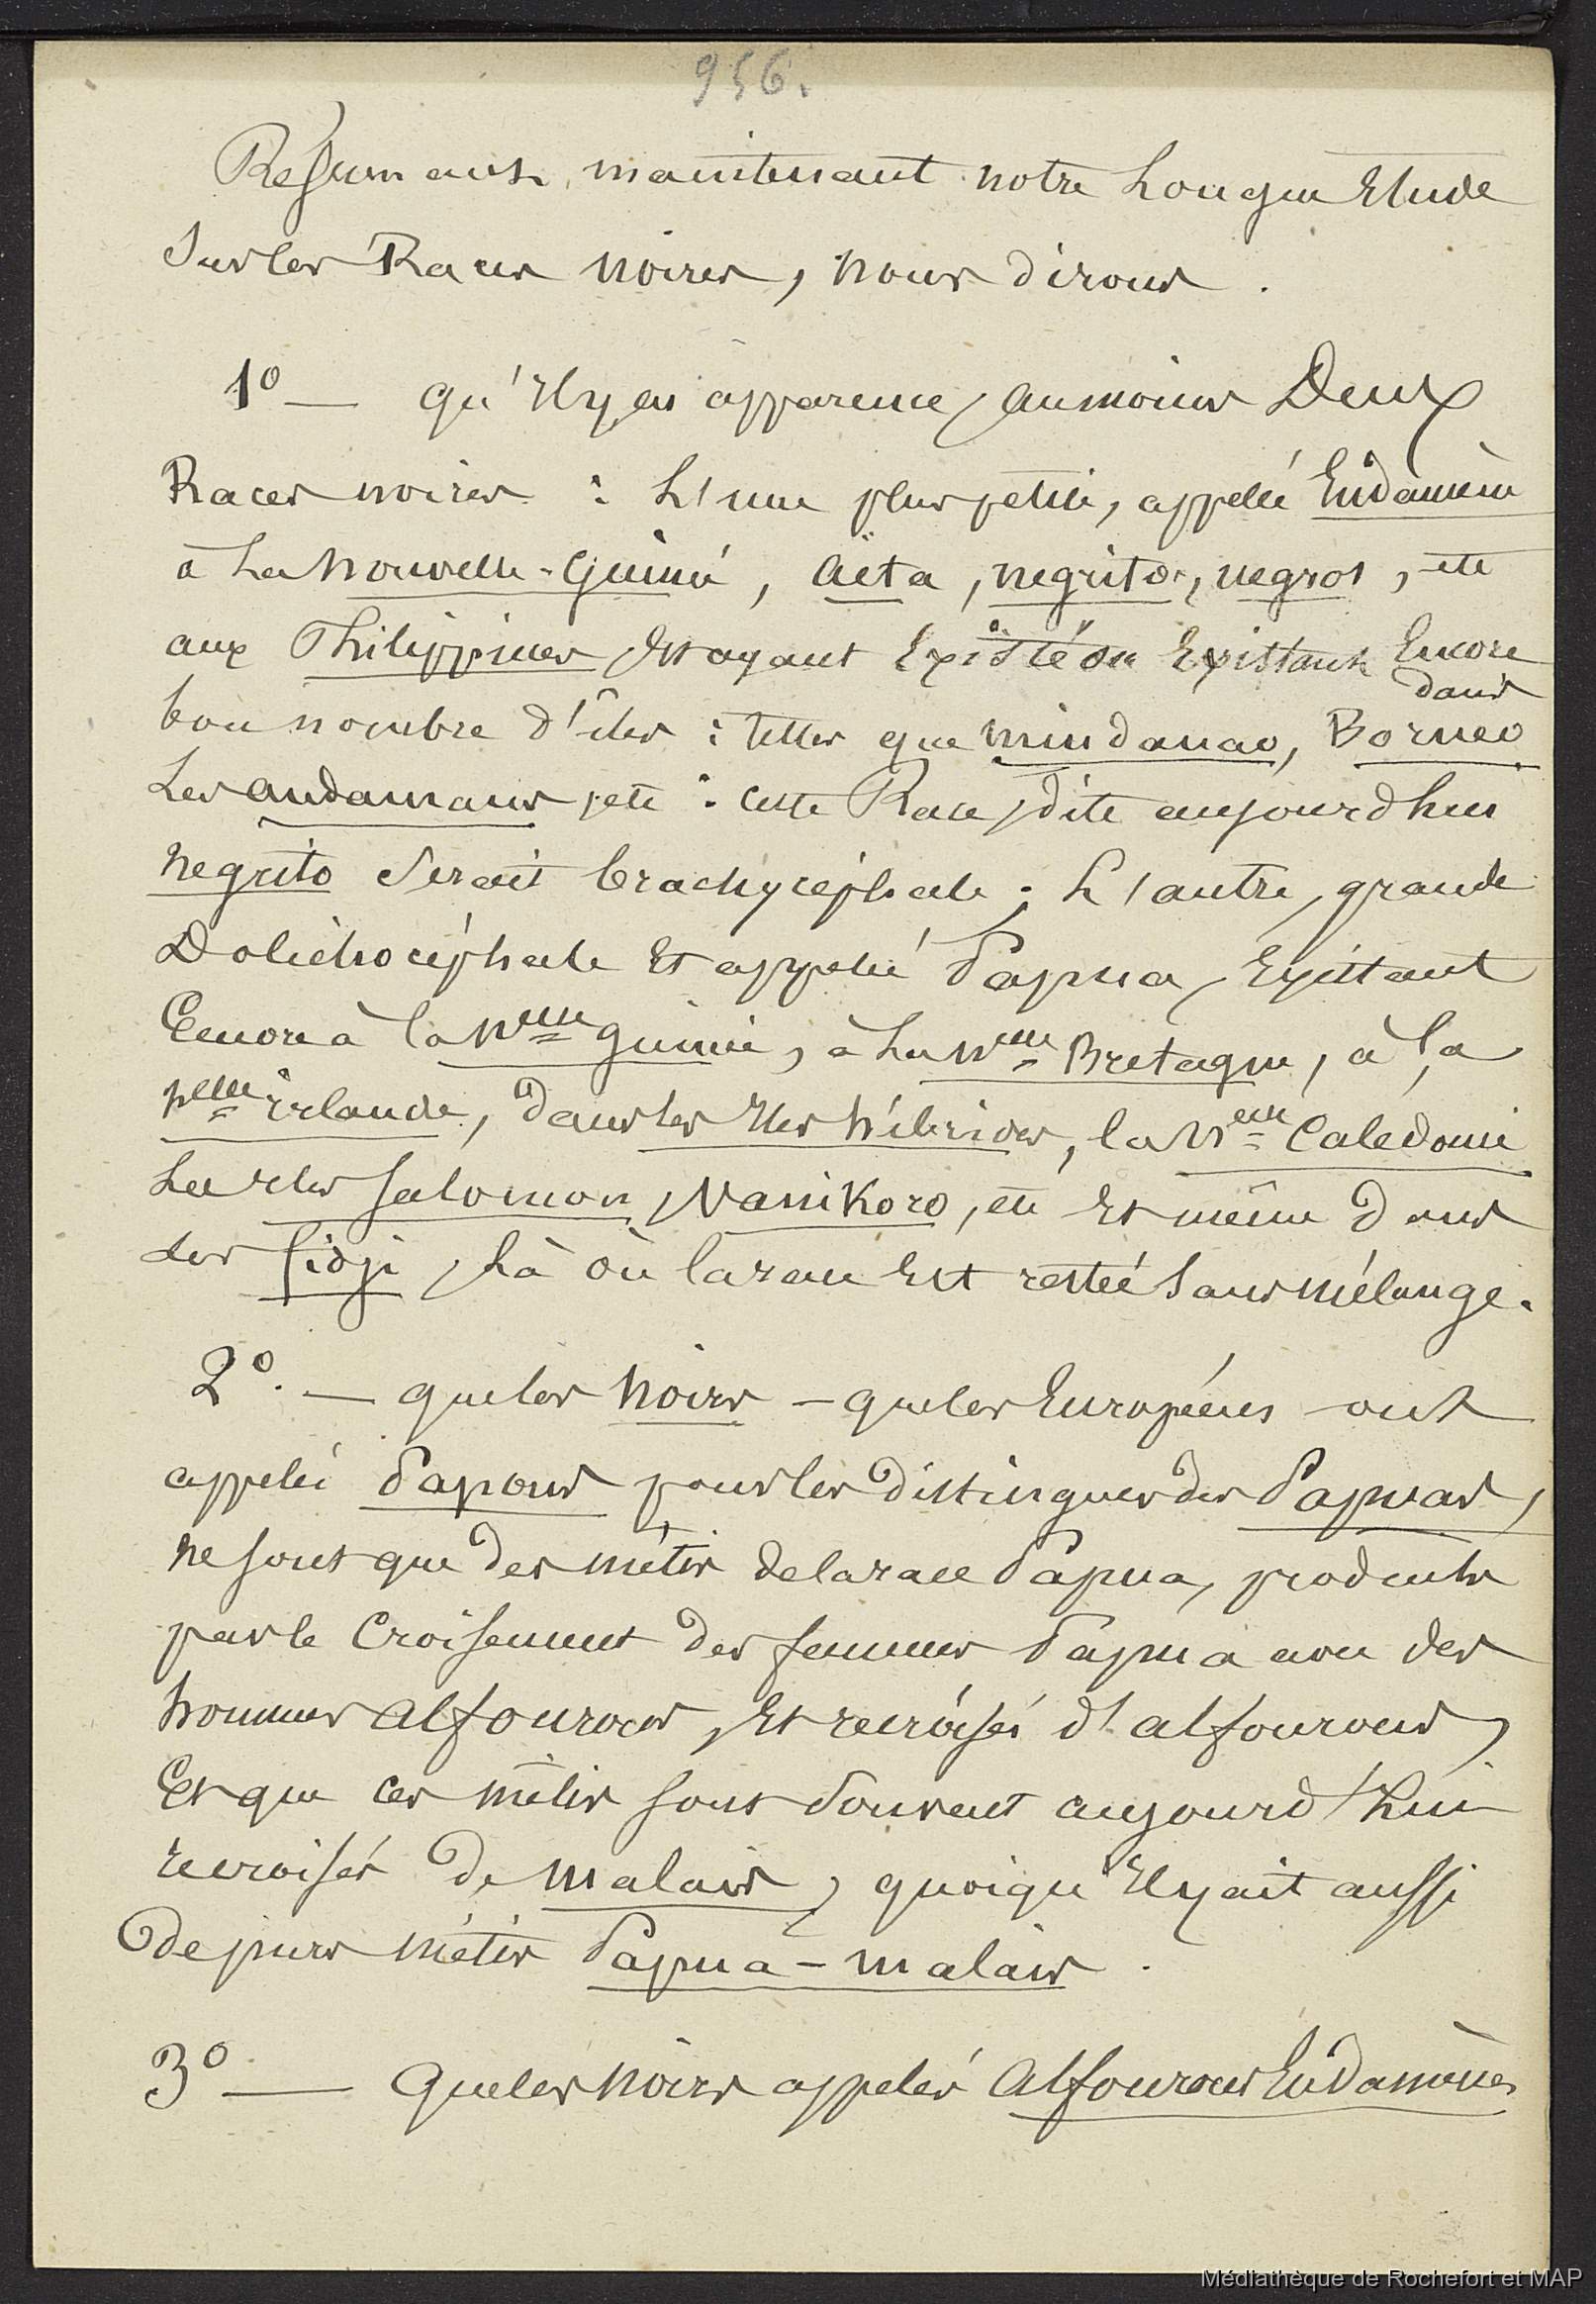 956.
Résumant maintenant notre Longue Etude
Sur les Races noires, nous dirons.
1º — qu'il y a, en apparence, au moins Deux
Races noires : L'une plus petite, appelée Endamène
à La Nouvelle-Guinée, Aëta, negrito, negros, etc
aux Philippines, et ayant Existé ou Existant Encore
dans
bon nombre d'iles : telles que mindanao, Borneo
Les andamans, etc : cette Race, dite aujourdhui
negrito serait brachycéphale ; L'autre, grande
Dolichocéphale et appelée Papua, Existant
Encore à la Nelle guinée, à La Nelle Bretagne, à La
Nelle irlande, dans les Iles hébrides, la Nelle Calédonie
Les iles Salomon, Vanikoro, etc et même dans
les fidji, Là où la race Est restée sans mélange.
2º. — que les noirs — que les Européens ont
appelé Papous pour les distinguer des Papuas,
ne sont que des métis de la race Papua, produits
par le Croisement des femmes Papua avec des
hommes alfourous, et recroisés d'alfourous,
Et que ces métis sont souvent aujourd'hui
recroisés de malais, quoiqu'il y ait aussi
De purs métis Papua-malais.
3º — Que les noirs appelés Alfourous Endamènes
Médiathèque de Rochefort et MAP